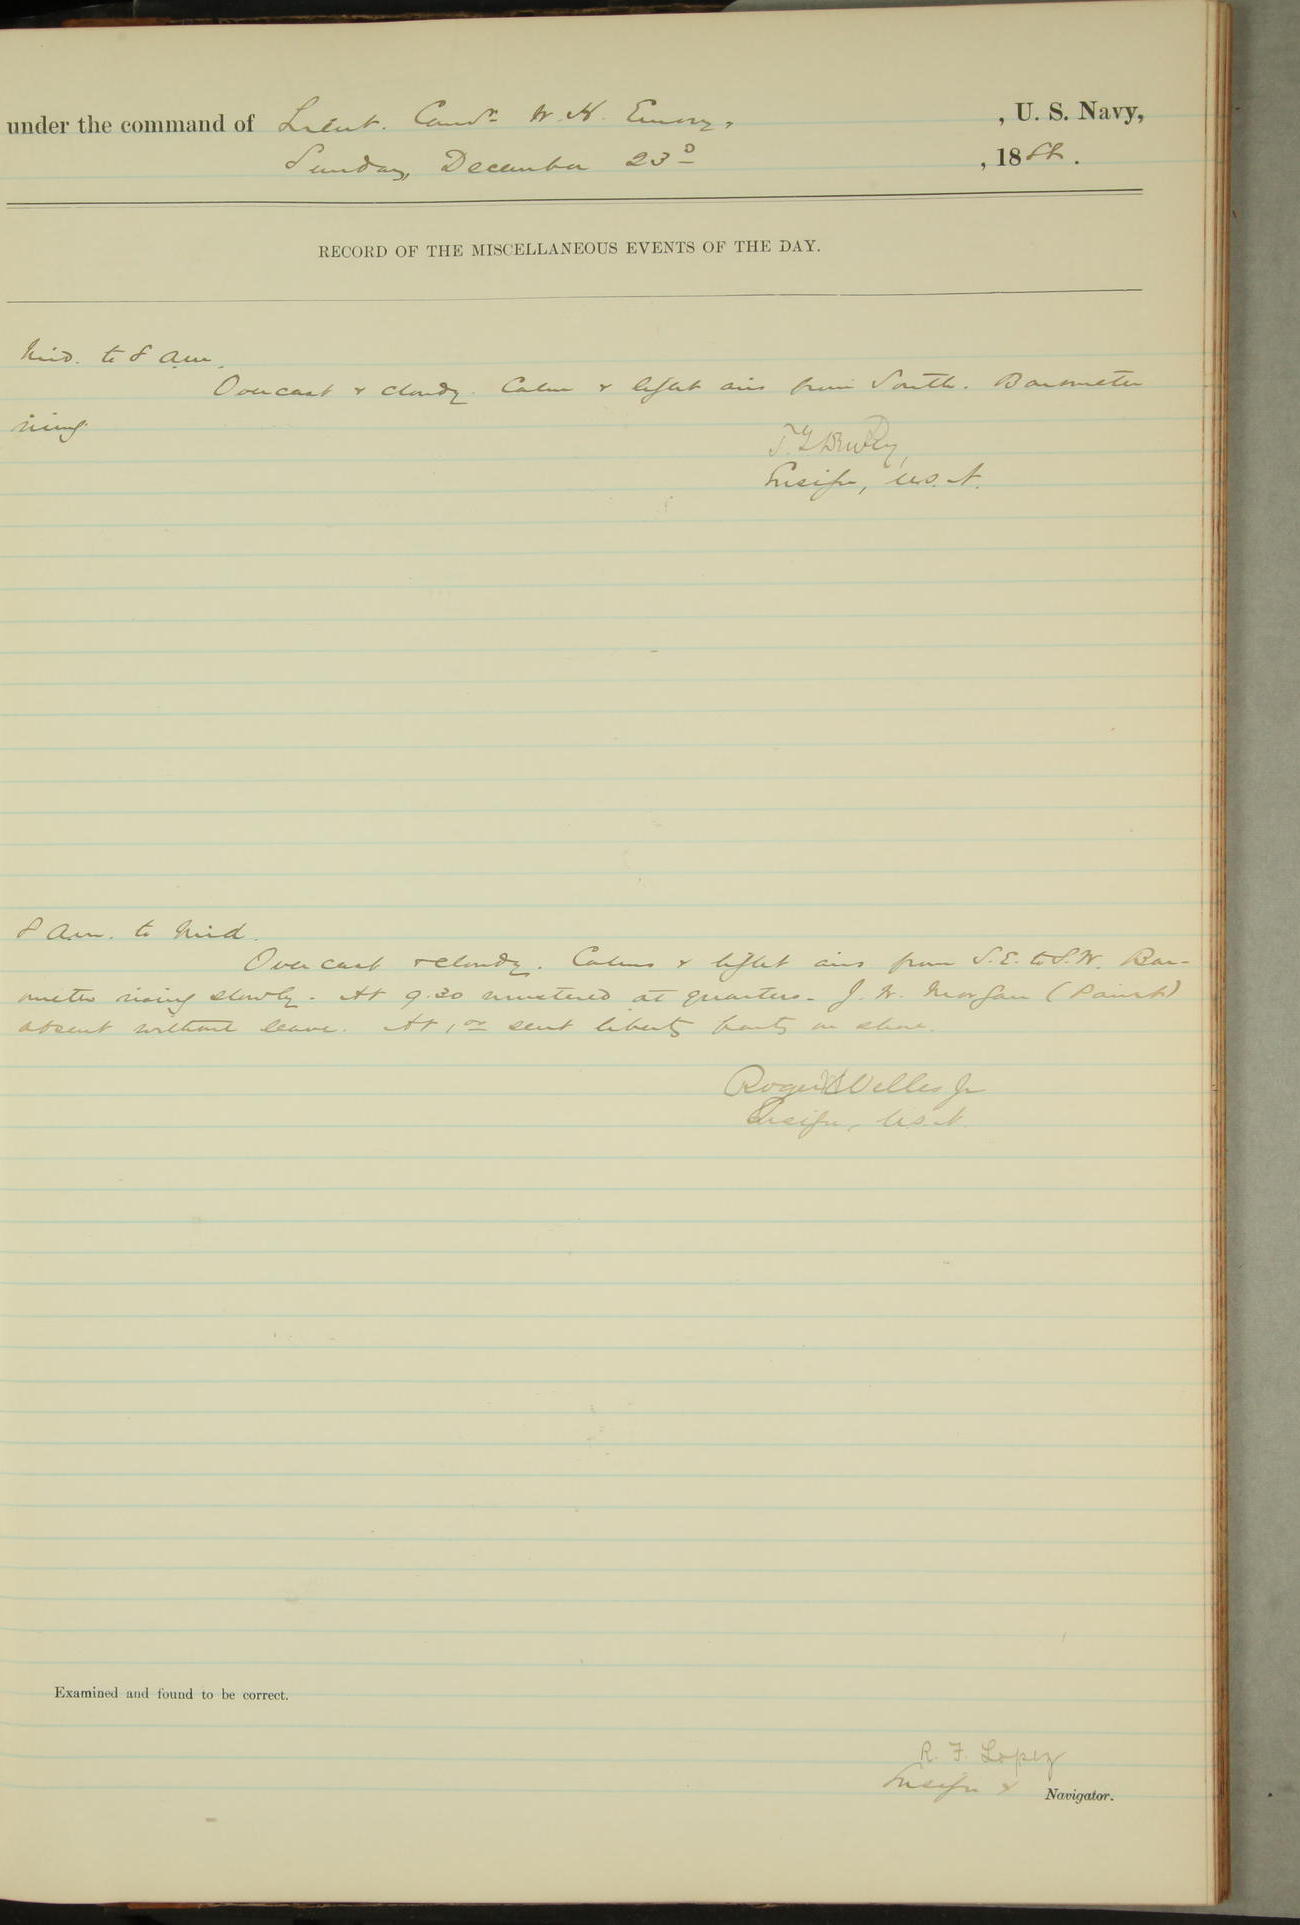 under the command of Lieut. Comdr. W. H. Emory, , U. S. Navy,
Sunday, December 23D , 1888.
RECORD OF THE MISCELLANEOUS EVENTS OF THE DAY.
Mid. to 8 a.m.
Overcast & cloudy. Calm & light airs from South. Barometer
rising.
Ensign, U.S.N.
8 a.m. to Mid.
Overcast & cloudy. Calms & light airs from S.E. to S.W. Bar-
ometer rising slowly. At 9.30 mustered at quarters. J. W. Morgan (Paint)
absent without leave. At 1.00 sent liberty party on shore.
Roger Welles Jr
Ensign, U.S.N.
Examined and found to be correct.
R. F. Lopez
Ensign & Navigator.